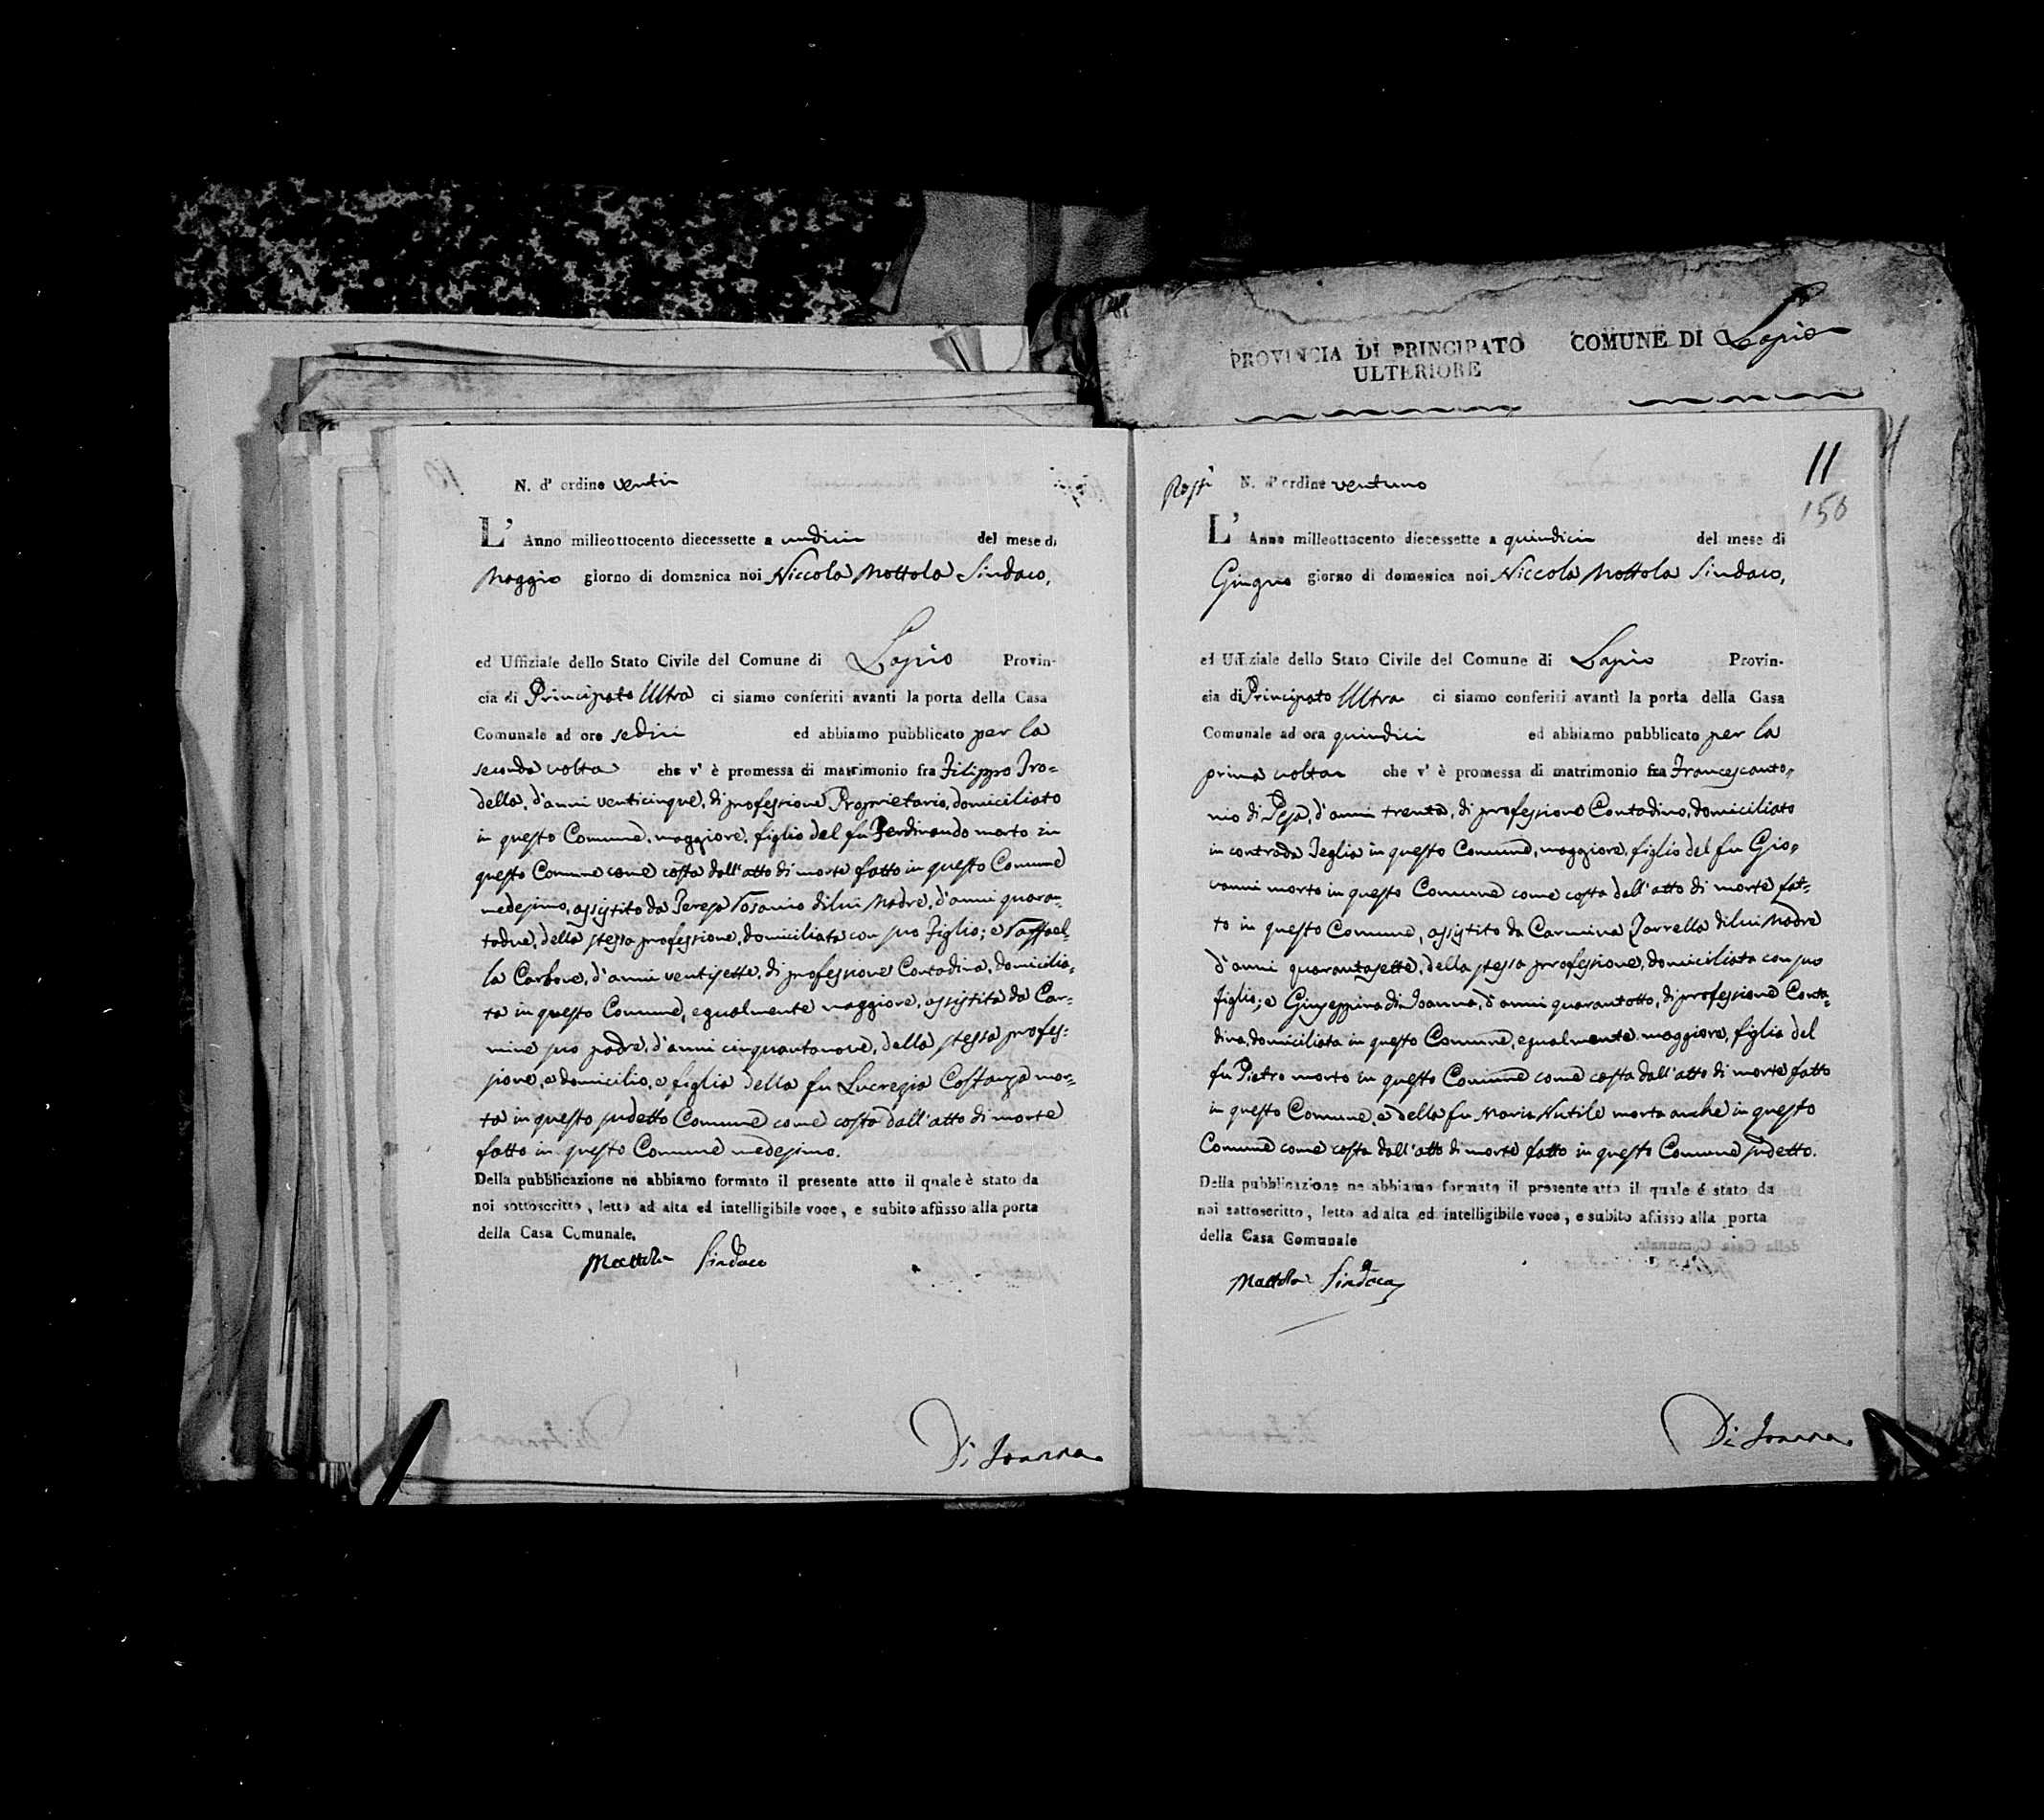 PROVINCIA DI PRINCIPATO
ULTERIORE
COMUNE DI Lapio
N. d' ordine venti
L' Anno milleottocento diecessette a undici del mese di
Maggio giorno di domenica noi Niccola Mottola Sindaco,
ed Uffiziale dello Stato Civile del Comune di Lapio Provin-
cia di Principato Ultra ci siamo conferiti avanti la porta della Casa
Comunale ad ore sedici ed abbiamo pubblicato per la
seconda volta che v' è promessa di matrimonio fra Filippo Tro=
della, d'anni venticinque, di professione Proprietario, domiciliato
in questo Comune, maggiore, figlio del fu Ferdinando morto in
questo Comune come costa dall'atto di morte fatto in questo Comune
medesimo, assistito da Teresa di lui Madre, d'anni quaran-
tadue, della stessa professione, domiciliata con suo Figlio; e Raffael-
la Carbone, d'anni ventisette, di professione Contadina, domicilia-
ta in questo Comune, egualmente maggiore, assistita da Car-
mine suo padre, d'anni cinquantanove, della stessa profes=
sione, e domicilio, e figlia della fu Lucrezia Costanza mor-
ta in questo sudetto Comune come costa dall'atto di morte
fatto in questo Comune medesimo.
Della pubblicazione ne abbiamo formato il presente atto il quale è stato da
noi sottoscritto, letto ad alta ed intelligibile voce, e subito affisso alla porta
della Casa Comunale.
Mottola Sindaco
Di Ioanna
11
156
N. d' ordine ventuno
L' Anno milleottocento diecessette a quindici del mese di
Giugno giorno di domenica noi Niccola Mottola Sindaco,
ed Uffiziale dello Stato Civile del Comune di Lapio Provin-
cia di Principato Ultra ci siamo conferiti avanti la porta della Casa
Comunale ad ora quindici ed abbiamo pubblicato per la
prima volta che v' è promessa di matrimonio fra Francescanto=
nio di Pesa, d'anni trenta, di professione Contadino, domiciliato
in contrada Teglia in questo Comune, maggiore, figlio del fu Gio=
vanni morto in questo Comune come costa dall'atto di morte fat-
to in questo Comune, assistito da Carmina Zarrella di lui Madre
d'anni quarantasette, della stessa professione, domiciliata con suo
figlio; e Giuseppina di Ioanna, d'anni quarantotto, di professione Conta-
dina, domiciliata in questo Comune, egualmente maggiore, figlia del
fu Pietro morto in questo Comune come costa dall'atto di morte fatto
in questo Comune, e della fu Maria Nutile morta anche in questo
Comune come costa dall'atto di morte fatto in questo Comune sudetto.
Della pubblicazione ne abbiamo formato il presente atto il quale é stato da
noi sottoscritto, letto ad alta ed intelligibile voce, e subito affisso alla porta
della Casa Comunale
Mottola Sindaco
Di Ioanna